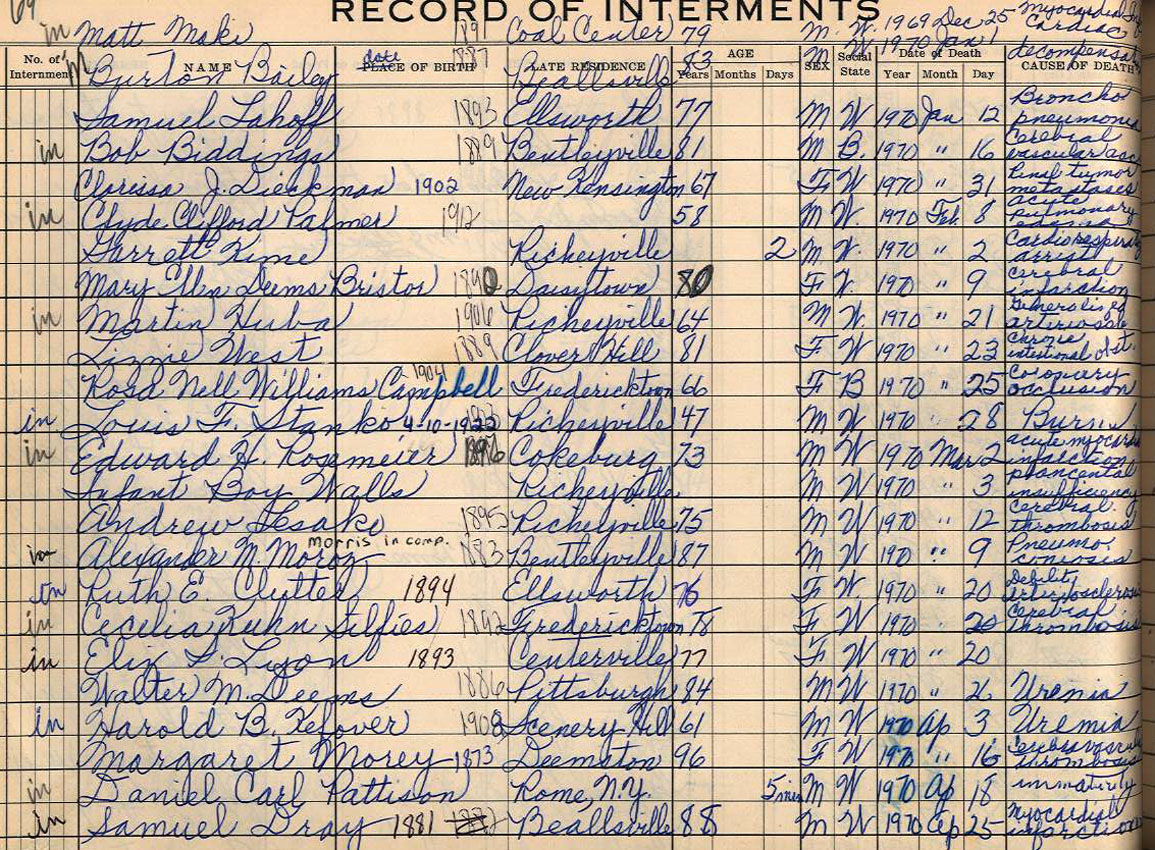 69
RECORD OF INTERMENTS
in Matt Maki 1891 Coal Center 79 M. W. 1969 Dec 25 Myocardial
No. of Internment NAME date PLACE OF BIRTH LATE RESIDENCE AGE Years Months Days SEX Social State Date of Death Year Month Day CAUSE OF DEATH
Burton Bailey 1887 Beallsville 83 M. W. 1970 Jan 1 Cardiac decompensa
Samuel Lahoff 1893 Ellsworth 77 M W 1970 Jan 12 Broncho pneumonia
in Bob Biddings 1889 Bentleyville 81 M B. 1970 " 16 Cerebral vascular acc
Clarissa J. Dieckman 1902 New Kensington 67 F W 1970 " 31 Renal tumor metastases
in Clyde Clifford Palmer 1912 58 M W. 1970 Feb. 8 acute pulmonary
Garrett Kime Richeyville 2 M W. 1970 " 2 Cardiorespirat arrest
Mary Ellen Deems Bristor 1890 Daisytown 80 F W. 1970 " 9 Cerebral infarction
in Martin Huba 1906 Richeyville 64 M W. 1970 " 21 Generalized arterioscle
Lizzie West 1889 Clover Hill 81 F W 1970 " 23 Chronic intestional obst.
Rosa Nell Williams Campbell 1904 Fredericktown 66 F B 1970 " 25 Coronary occlusion
in Louis F. Stanko 4-10-1922 Richeyville 47 M W 1970 " 28 Burns
in Edward H. Rosemeier 1896 Cokeburg 73 M W 1970 Mar 2 acute myocard infarction
Infant Boy Walls Richeyville. M W 1970 " 3 placental insufficiency
Andrew Lesako 1895 Richeyville 75 M W 1970 " 12 Cerebral thrombosis
morris in comp.
in Alexander M. Moroz 1883 Bentleyville 87 M W 1970 " 9 Pneumo coniosis
in Ruth E. Clutter 1894 Ellsworth 76 F W. 1970 " 20 Debility Arteriosclerosis
in Cecelia Kuhn Silfies 1892 Fredericktown 78 F W 1970 " 20 Cerebral thrombosis
in Eliz S. Lyon 1893 Centerville 77 F W 1970 " 20
Walter M. Deems 1886 Pittsburgh 84 M W 1970 " 21 Uremia
in Harold B. Kefover 1908 Scenery Hill 61 M W 1970 Ap 3 Uremia
Margaret Morey 1873 Deemston 96 F W 1970 " 16 thrombosis
in Daniel Carl Pattison Rome, N.Y. 5 min M W 1970 Ap 18 immaturity
in Samuel Dray 1881 Beallsville 88 M W 1970 Ap 25 Myocardial infarction